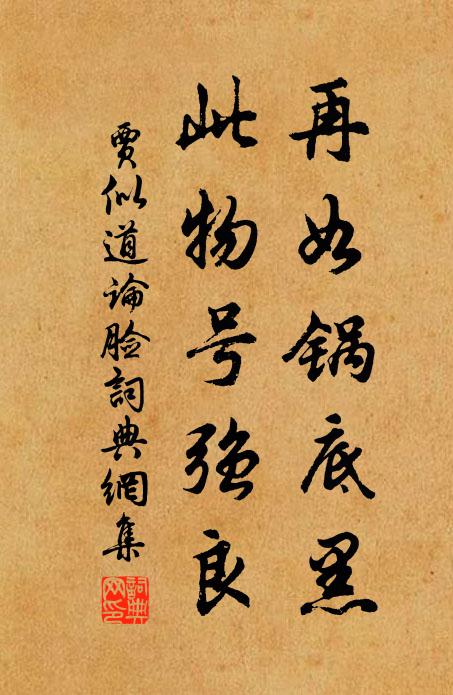 再如锅底黑
此物号强良
賈似道論臉詞典網集
詞典网印